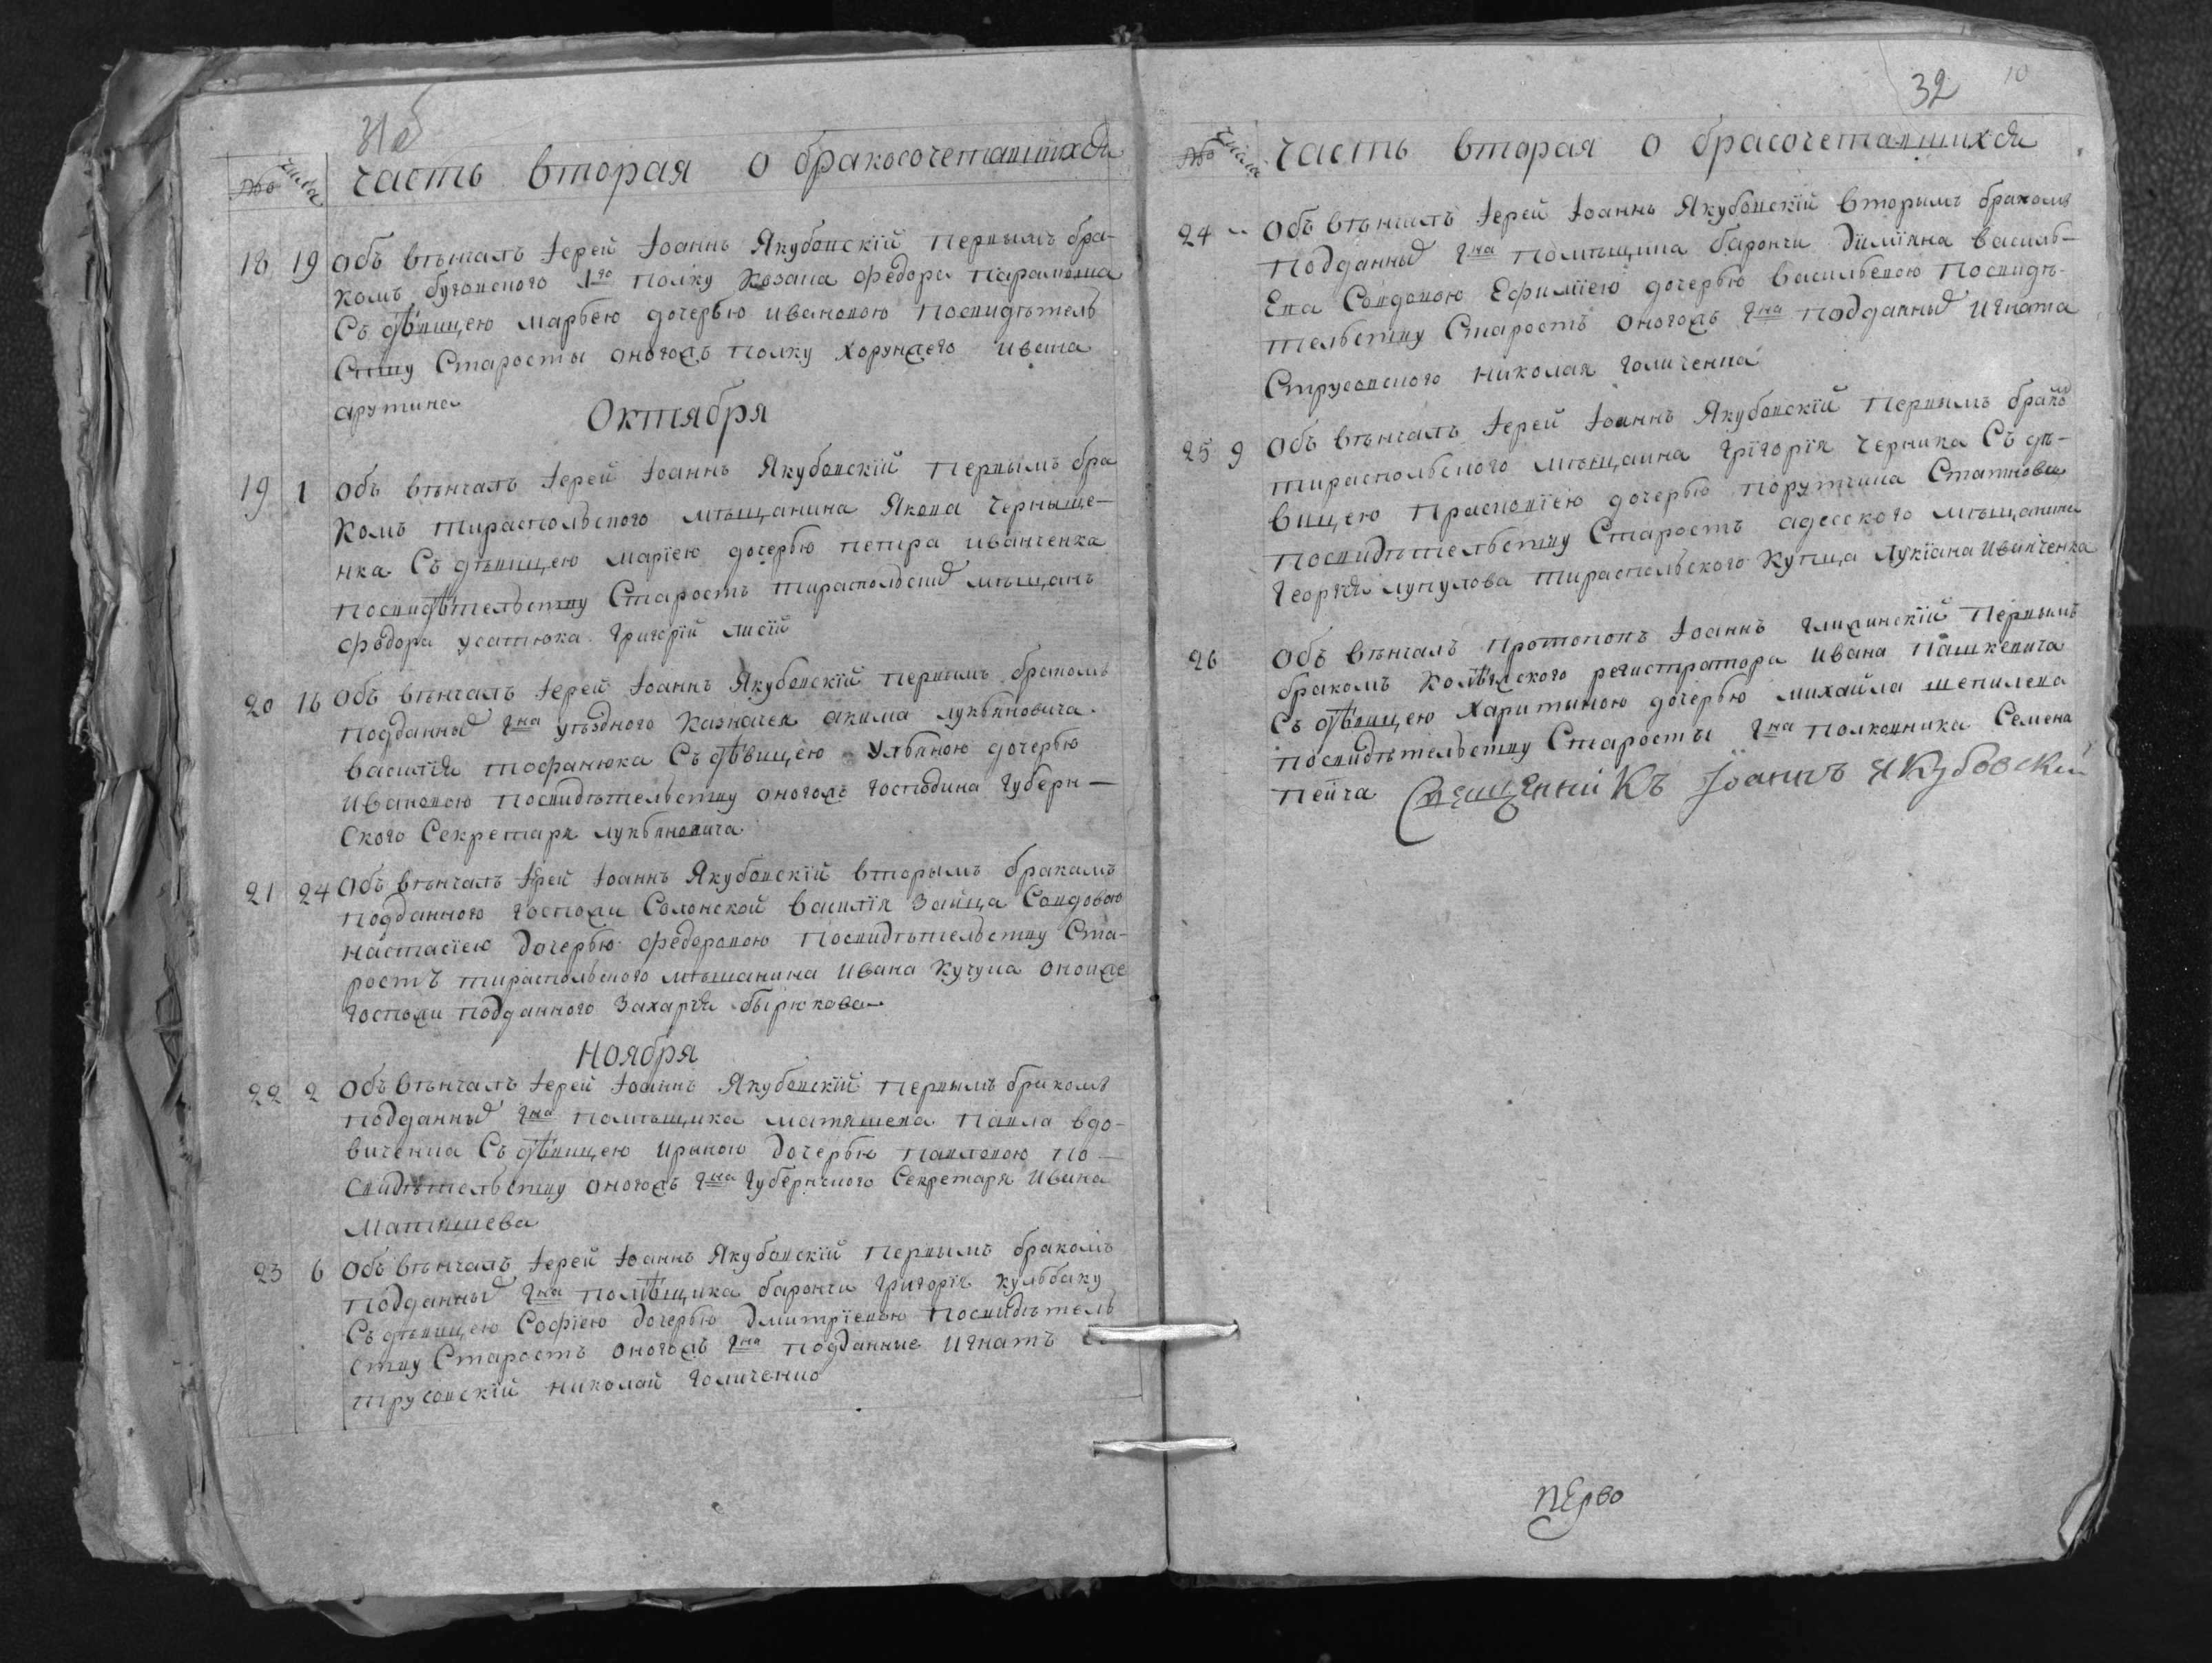 31 об
№ Числа Часть вторая о бракосочетавшихся
18 19 Объ вѣнчалъ Іерей Іоаннъ Якубовскій первымъ бра-
комъ бугского 1го полку козака Федора Парамона
Съ дѣвицею Марѳею дочерью Ивановою посвидѣтель
ству Старосты оногожъ полку хорунжего Ивана
арутина
Октября
19 1 Объ вѣнчалъ Іерей Іоаннъ Якубовскій первымъ бра
комъ тираспольского мѣщанина Якова Черныше-
нка Съ дѣвицею Маріею дочерью Петра Иванченка
посвидѣтельству Старостъ тираспольских мѣщанъ
Федора Усатюка Григорій Лисій
20 16 Объ вѣнчалъ Іерей Іоаннъ Якубовскій первымъ бракомъ
подданный гна уѣздного Казначея акима лукьяновича
Василія тофанюка Съ дѣвицею Ульяною дочерью
Ивановою посвидѣтельству оногожъ господина губерн-
ского Секретаря лукьяновича
21 24 Объ вѣнчалъ Іерей Іоаннъ Якубовскій вторымъ бракомъ
подданного госпожи Солонской Василія Зайца Совдовою
настасіею дочерью Федоровою посвидѣтельству Ста-
ростъ тираспольского мѣшанина Ивана Кучума оноиже
госпожи подданного Захарія бырюкова
Ноября
22 2 Объ вѣнчалъ Іерей Іоаннъ Якубовскій первымъ бракомъ
подданный гна помѣщика матяшева Павла вдо-
виченка Съ дѣвицею Ириною дочерью Павловою по-
свидѣтельству оногожъ гна губернского Секретаря Ивана
Матяшева
23 6 Объ вѣнчалъ Іерей Іоаннъ Якубовскій первымъ бракомъ
подданный гна помѣщика барончи григорія кульбаку
Съ дѣвицею Софіею дочерью дмитріевою посвидѣтель
ству Старостъ оногожъ гна подданные Игнатъ С
трусовскій николай голиченко
32 10
№ Числа Часть вторая о брасочетавшихся
24 Объ вѣнчалъ Іерей Іоаннъ Якубовскій вторымъ бракомъ
подданный гна помѣщика барончи диміяна василь-
ева Совдовою Ефиміею дочерью Васильевою посвидѣ-
тельству Старостъ оногожъ гна подданный Игната
Струсовского николая голиченка
25 9 Объ вѣнчалъ Іерей Іоаннъ Якубовскій первымъ бракомъ
тираспольского мѣщанина григорія черника Съ дѣ-
вицею Прасковіею дочерью порутчика Статнова
посвидѣтельству Старостъ адесского мѣщанина
георгія лупулова тираспольского Купца лукіана Иванченка
26 Объ вѣнчалъ протопопъ Іоаннъ глижинскій первымъ
бракомъ колѣжского регистратора Ивана Пашкевича
Съ дѣвицею харитиною дочерью михайла шепилева
посвидѣтельству Старосты гна полковника Семена
пейча Священникъ Іоаннъ Якубовскій
перво